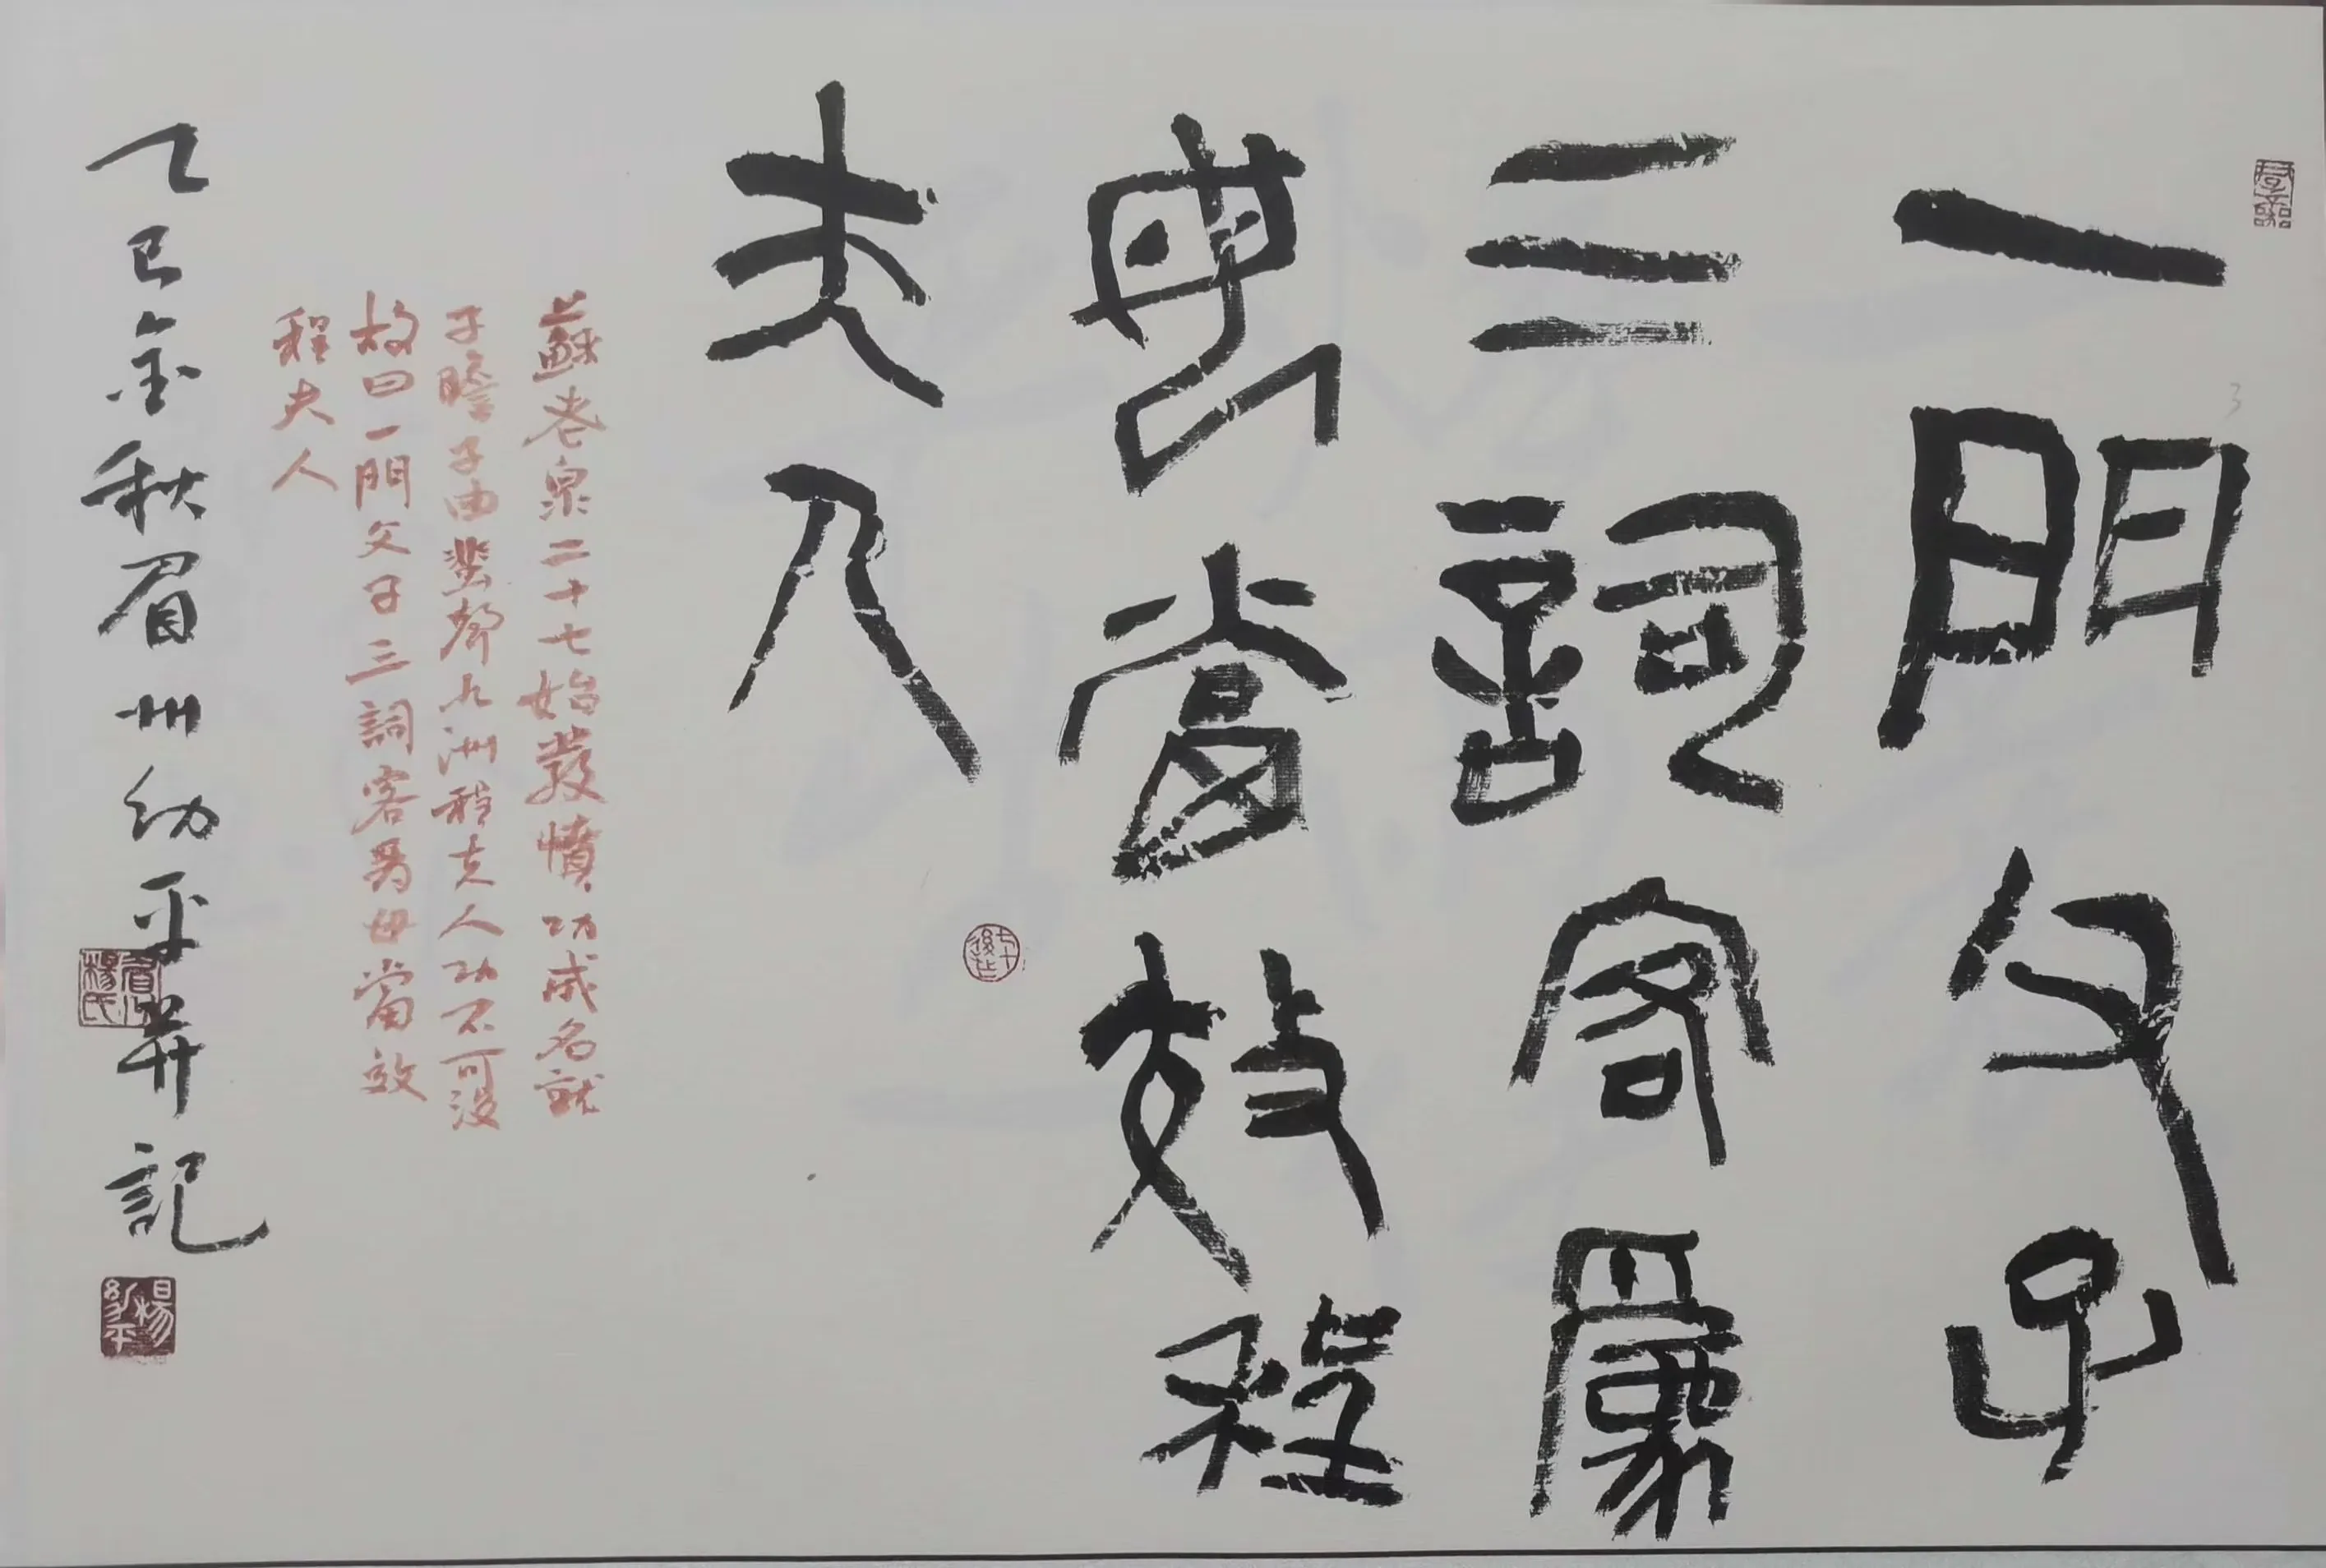 一門父子
三詞客為
母當效程
夫人
蘇老泉二十七始發憤功成名就
子瞻子由蜚聲九洲程夫人功不可沒
故曰一門父子三詞客為母當效
程夫人
乙巳金秋眉州幼平并記
楊幼平